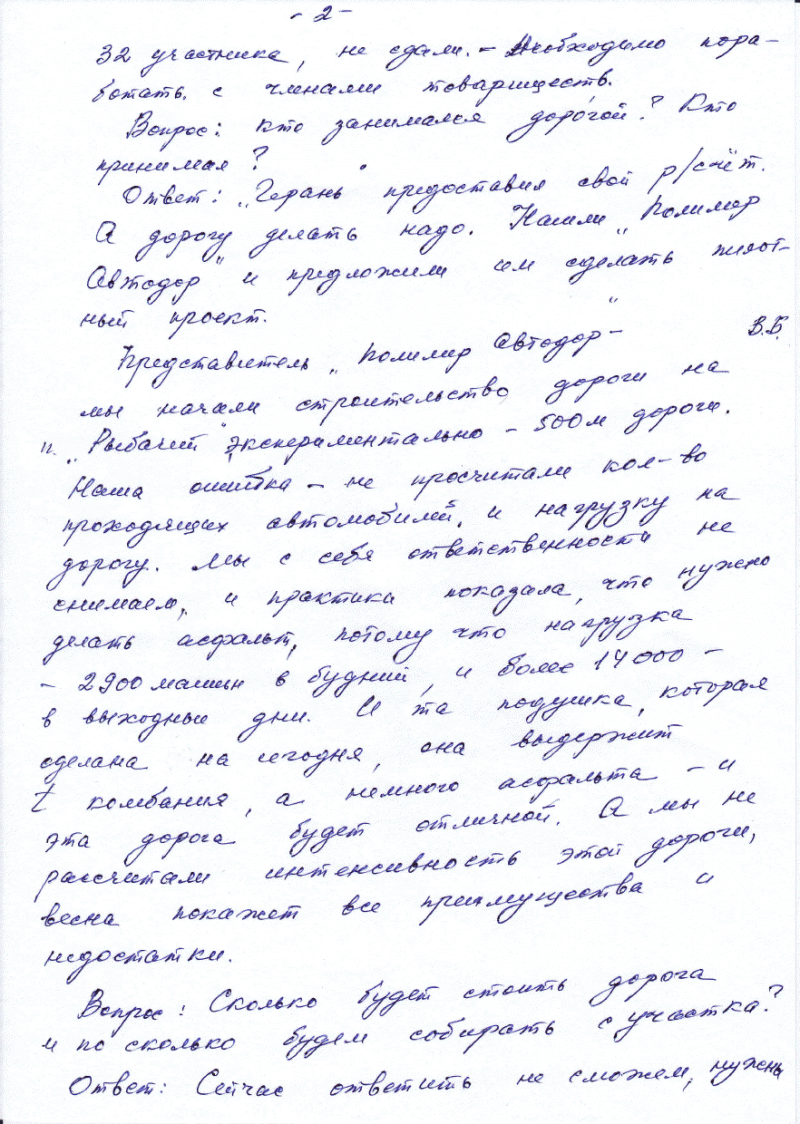 - 2 -
32 участника, не сдали. - Необходимо пора-
ботать с членами товариществ.
Вопрос: кто занимался дорогой? Кто
принимал?
Ответ: „Герань" предоставил свой р/счёт.
А дорогу делать надо. Нашли „Полимер
Автодор" и предложили им сделать пилот-
ный проект.
Представитель „Полимер Автодор" - В.Б.
мы начали строительство дороги на
п. „Рыбачий" экспериментально - 500 м дороги.
Наша ошибка - не просчитали кол-во
проходящих автомобилей, и нагрузку на
дорогу. Мы с себя ответственности не
снимаем, и практика показала, что нужно
делать асфальт, потому что нагрузка
- 2900 машин в будний, и более 14000 -
в выходные дни. И та подушка, которая
сделана на сегодня, она выдержит
t колебания, а немного асфальта - и
эта дорога будет отличной. А мы не
рассчитали интенсивность этой дороги,
весна покажет все преимущества и
недостатки.
Вопрос: Сколько будет стоить дорога
и по сколько будем собирать с участка?
Ответ: Сейчас ответить не сможем, нужны